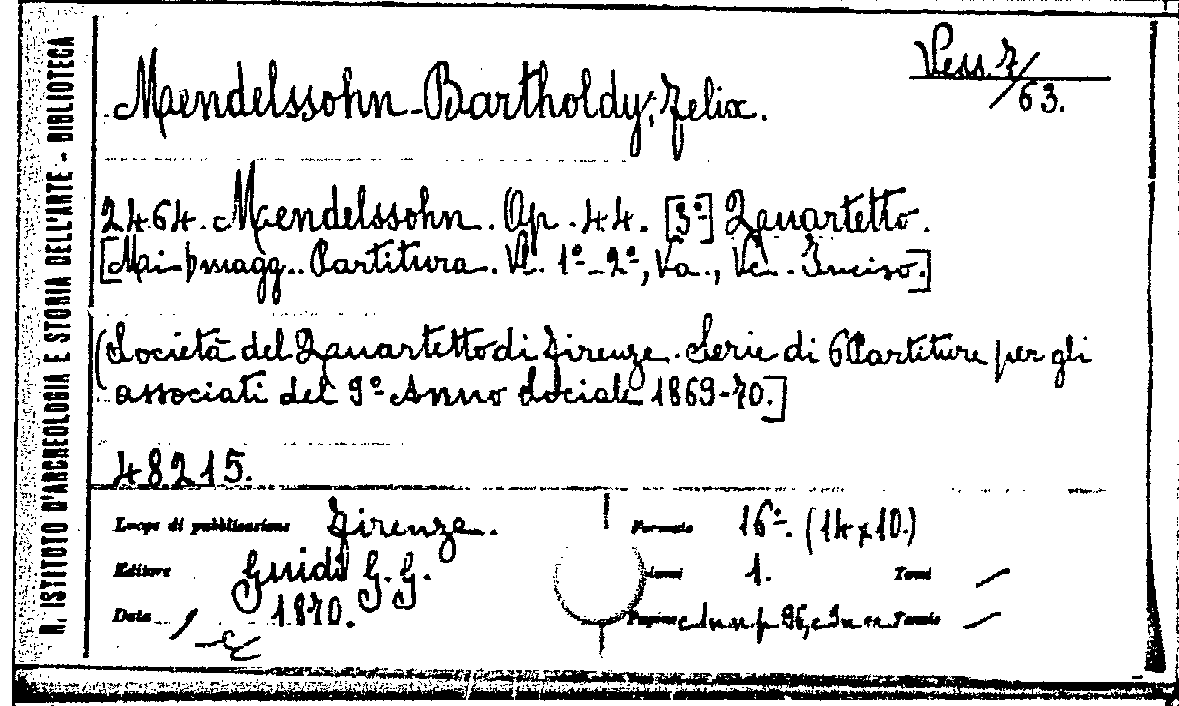 R. ISTITUTO D'ARCHEOLOGIA E STORIA DELL'ARTE - BIBLIOTECA
Vess. Z/63.
Mendelssohn-Bartholdy, Felix.
2464. Mendelssohn. Op. 44. [3º] Quartetto.
[Mi b magg.. Partitura. Vl. 1º-2º, Va., Vc. Inciso.]
(Società del Quartetto di Firenze. Serie di 6 Partiture per gli
associati del 9º Anno Sociale 1869-70.]
48215.
Luogo di pubblicazione Firenze.
Formato 16º. (14x10.)
Editore Guidi G. G.
1. Tomi
Data 1870.
Pagine c 1 n n p 96, c 3 n n Tavole